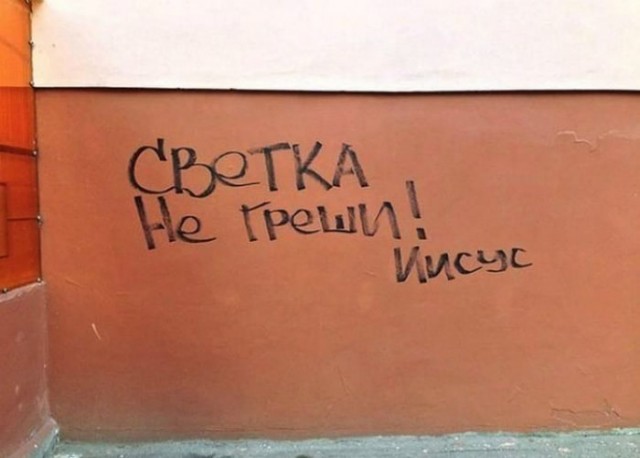 СВеТКА
Не греши!
Иисус